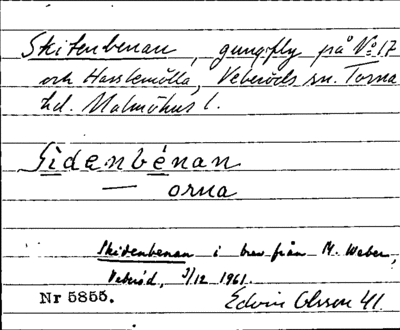 Skitenbenan, gungfly på No 17
och Hasslemölla, Veberöds sn. Torna
hd. Malmöhus l.
Sìdenbénan
— orna
Skidenbenan i brev från M. Weber,
Veberöd, 3/12 1961.
Nr 5855. Edvin Olsson 41.